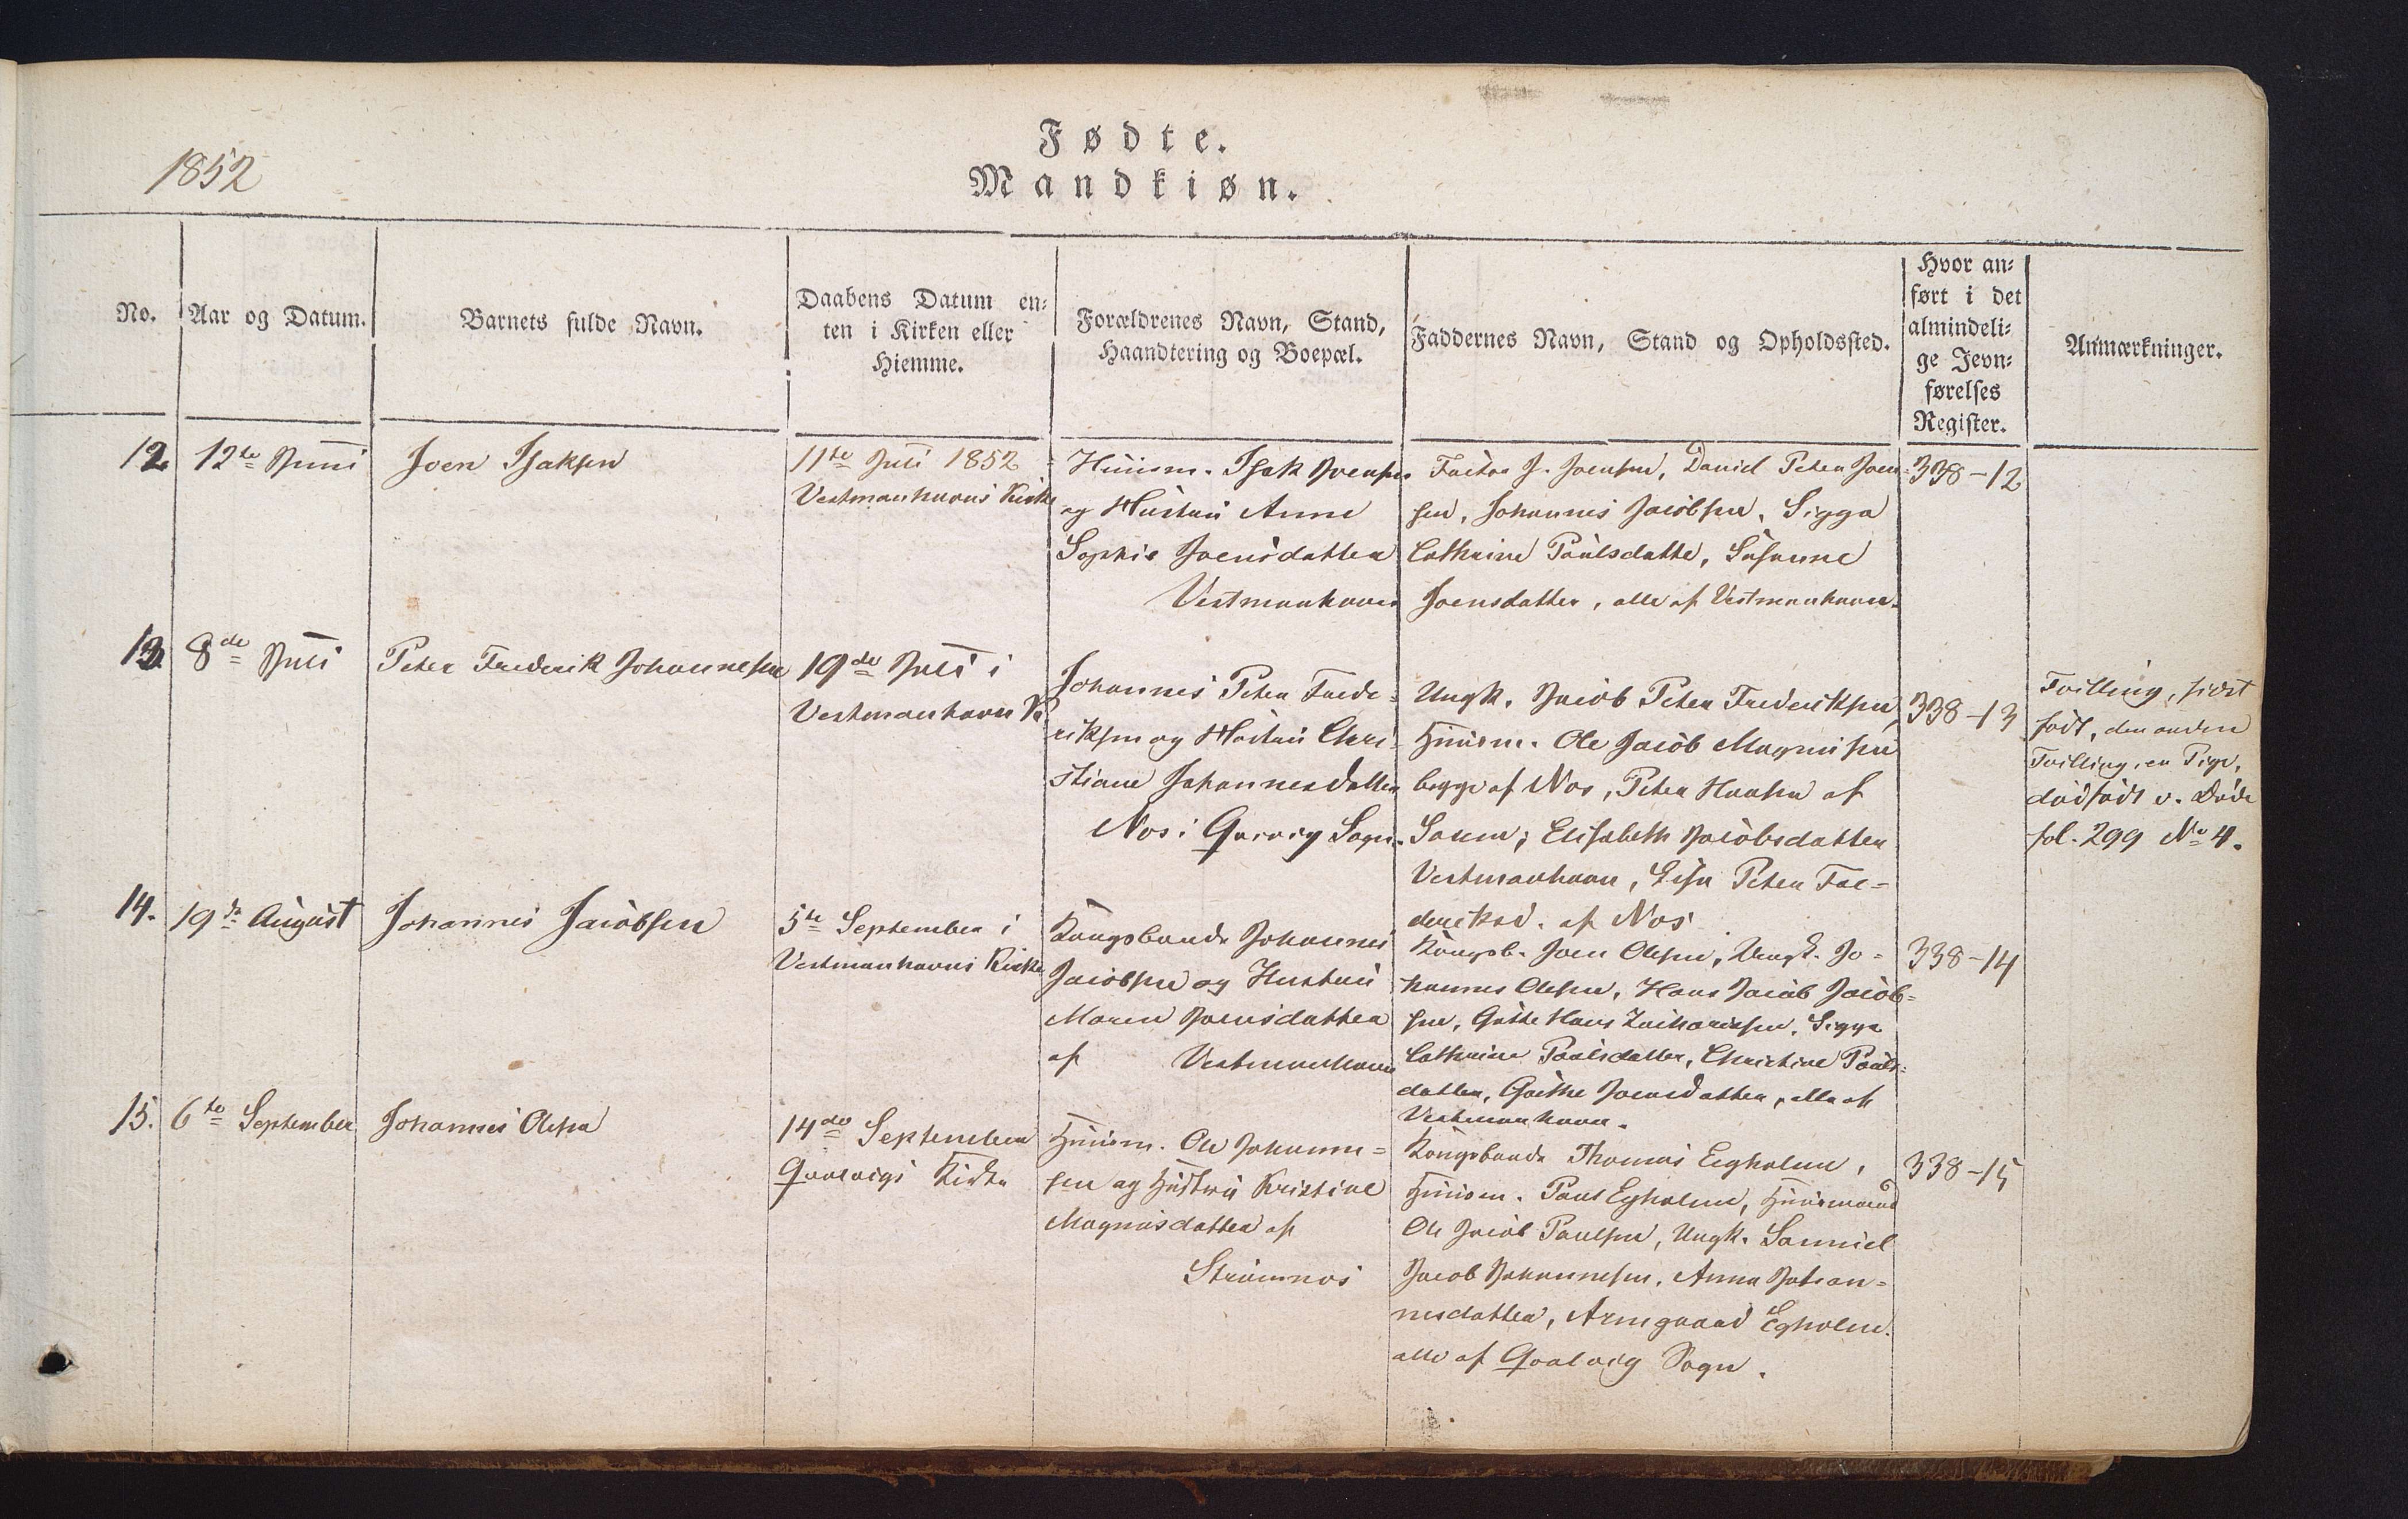 1852
Fødte.
Mandkiøn.
No.
Aar og Datum.
Barnets fulde Navn.
Daabens Datum en-
ten i Kirken eller
Hiemme.
Forældrenes Navn, Stand,
Haandtering og Boepæl.
Faddernes Navn, Stand og Opholdssted.
Hvor an-
ført i det
almindeli-
ge Jevn-
førelses
Register.
Anmærkninger.
12.
12te Juni
Joen Isaksen
11te Juli 1852
Vestmanhavns Kirke
Huusm. Isak Joensen
og Hustru Anne
Sophie Joensdatter
Vestmanhavn
J. Joensen, Daniel Peter Joen-
sen, Johannes Jacobsen, Sigga
Cathrine Poulsdatter, Susanne
Joensdatter, alle af Vestmanhavn.
338-12
13.
8de Juli
Peter Frederik Johannesen
19de Juli i
Vestmanhavn K.
Johannes Peter Frede-
riksen og Hustru Chri-
stiane Johannesdatter
Nos i Qvivig Sogn.
Ungk. Jacob Peter Frederiksen,
Huusm. Ole Jacob Magnusen
begge af Nos, Peter Hansen af
Saxen; Elisabeth Jacobsdatter
Vestmanhavn, Peter Fre-
deriksd. af Nos
338-13
Tvilling, sidst
født, den anden
Tvilling, en Pige,
dødfødt v. Døde
fol. 299 No 4.
14.
19de August
Johannes Jacobsen
5te September i
Vestmanhavns Kirke
Kongsbonde Johannes
Jacobsen og Hustru
Maren Joensdatter
af Vestmanhavn
Kongsb. Joen Olesen, Ungk. Jo-
hannes Olesen, Hans Jacob Jacob-
sen, Hans Zachariasen, Sigga
Cathrine Poulsdatter, Christine Pouls-
datter, Joensdatter, alle af
Vestmanhavn.
338-14
15.
6te September
Johannes Olesen
14de September
Qvalvigs Kirke
Huusm. Ole Johanne-
sen og Hustru Kristine
Magnusdatter af
Strømnæs
Kongsbonde Thomas Egholm,
Huusm. Poul Egholm, Huusmand
Ole Jacob Poulsen, Ungk. Samuel
Jacob Johannesen, Anna Johan-
nesdatter, Armgaard Egholm.
alle af Qvalvig Sogn.
338-15